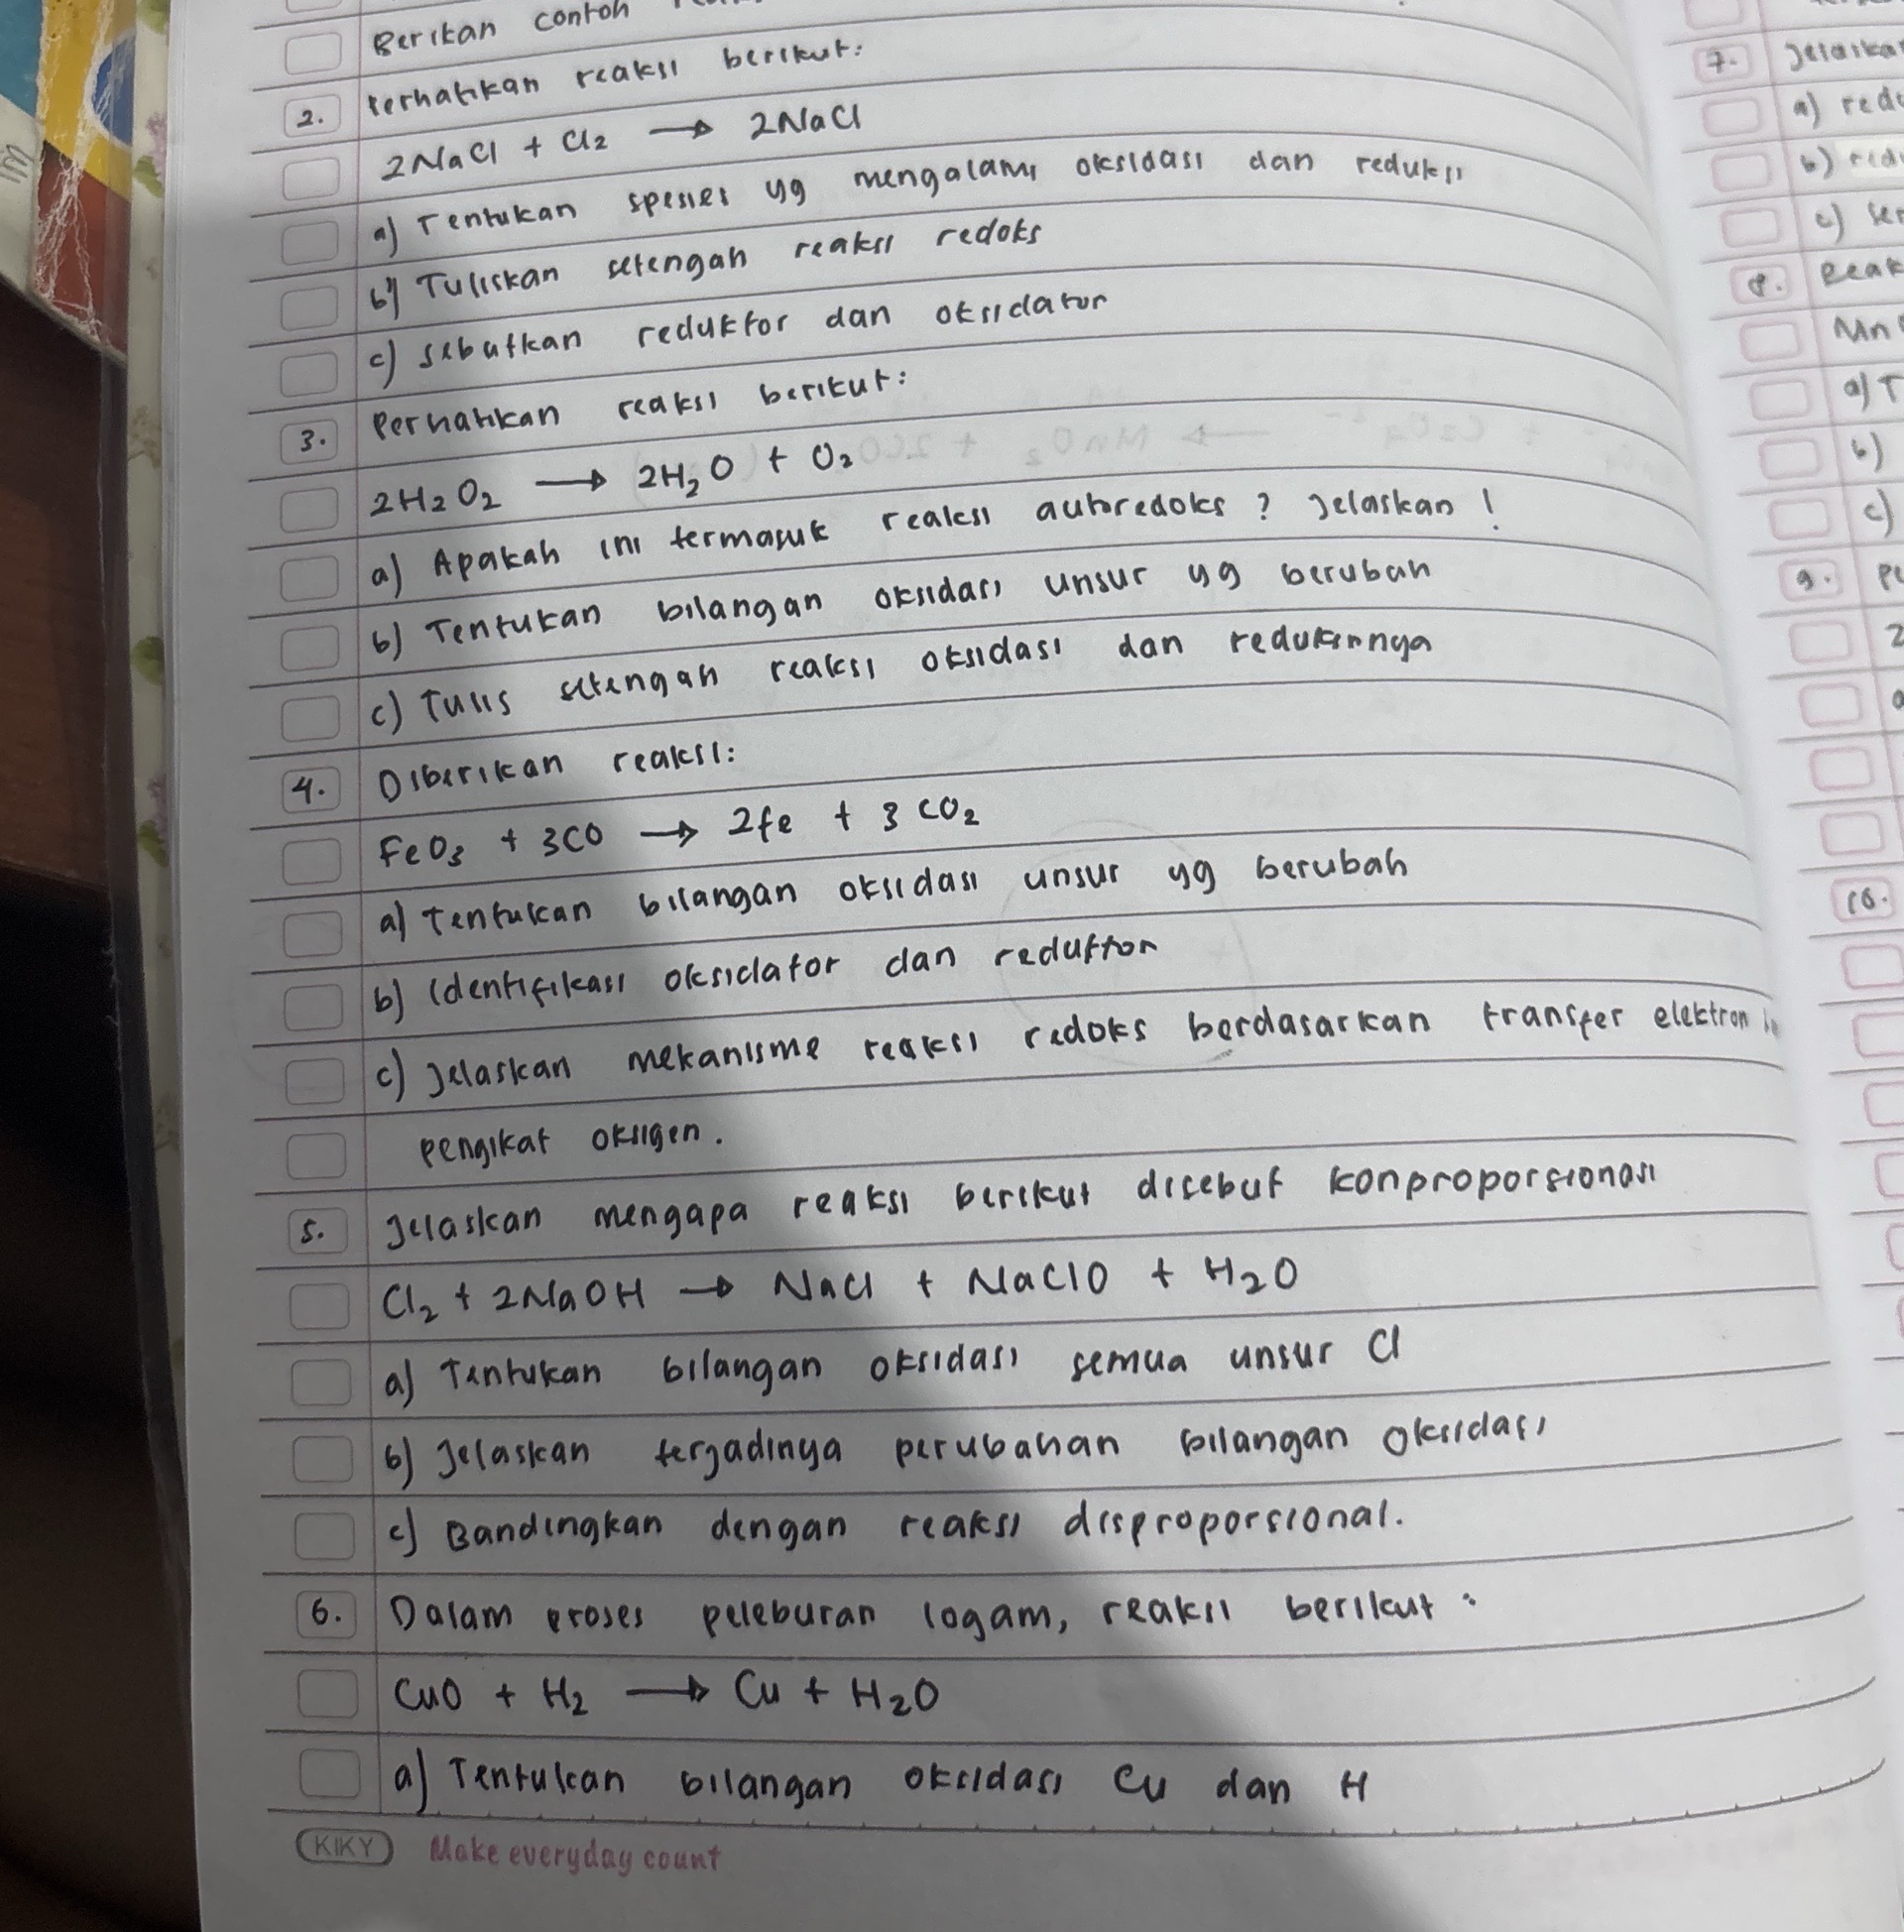 Berikan contoh
2. Perhatikan reaksi berikut:
2NaCl + Cl₂ → 2NaCl
a) Tentukan spesies yg mengalami oksidasi dan reduksi
b) Tuliskan setengah reaksi redoks
c) Sebutkan reduktor dan oksidator
3. Perhatikan reaksi berikut:
2H₂O₂ → 2H₂O + O₂
a) Apakah ini termasuk reaksi autoredoks? Jelaskan!
b) Tentukan bilangan oksidasi unsur yg berubah
c) Tulis setengah reaksi oksidasi dan reduksinnya
4. Diberikan reaksi:
FeO₃ + 3CO → 2fe + 3CO₂
a) Tentukan bilangan oksidasi unsur yg berubah
b) Identifikasi oksidator dan reduktor
c) Jelaskan mekanisme reaksi redoks berdasarkan transfer elektron
pengikat oksigen.
5. Jelaskan mengapa reaksi berikut disebut konproporsionasi
Cl₂ + 2NaOH → NaCl + NaClO + H₂O
a) Tentukan bilangan oksidasi semua unsur Cl
b) Jelaskan terjadinya perubahan bilangan oksidasi
c) Bandingkan dengan reaksi disproporsional.
6. Dalam proses peleburan logam, reaksi berikut:
CuO + H₂ → Cu + H₂O
a) Tentukan bilangan oksidasi Cu dan H
KIKY Make everyday count
7.
a)
b)
c)
8.
Mn
a) T
b)
c)
9.
10.